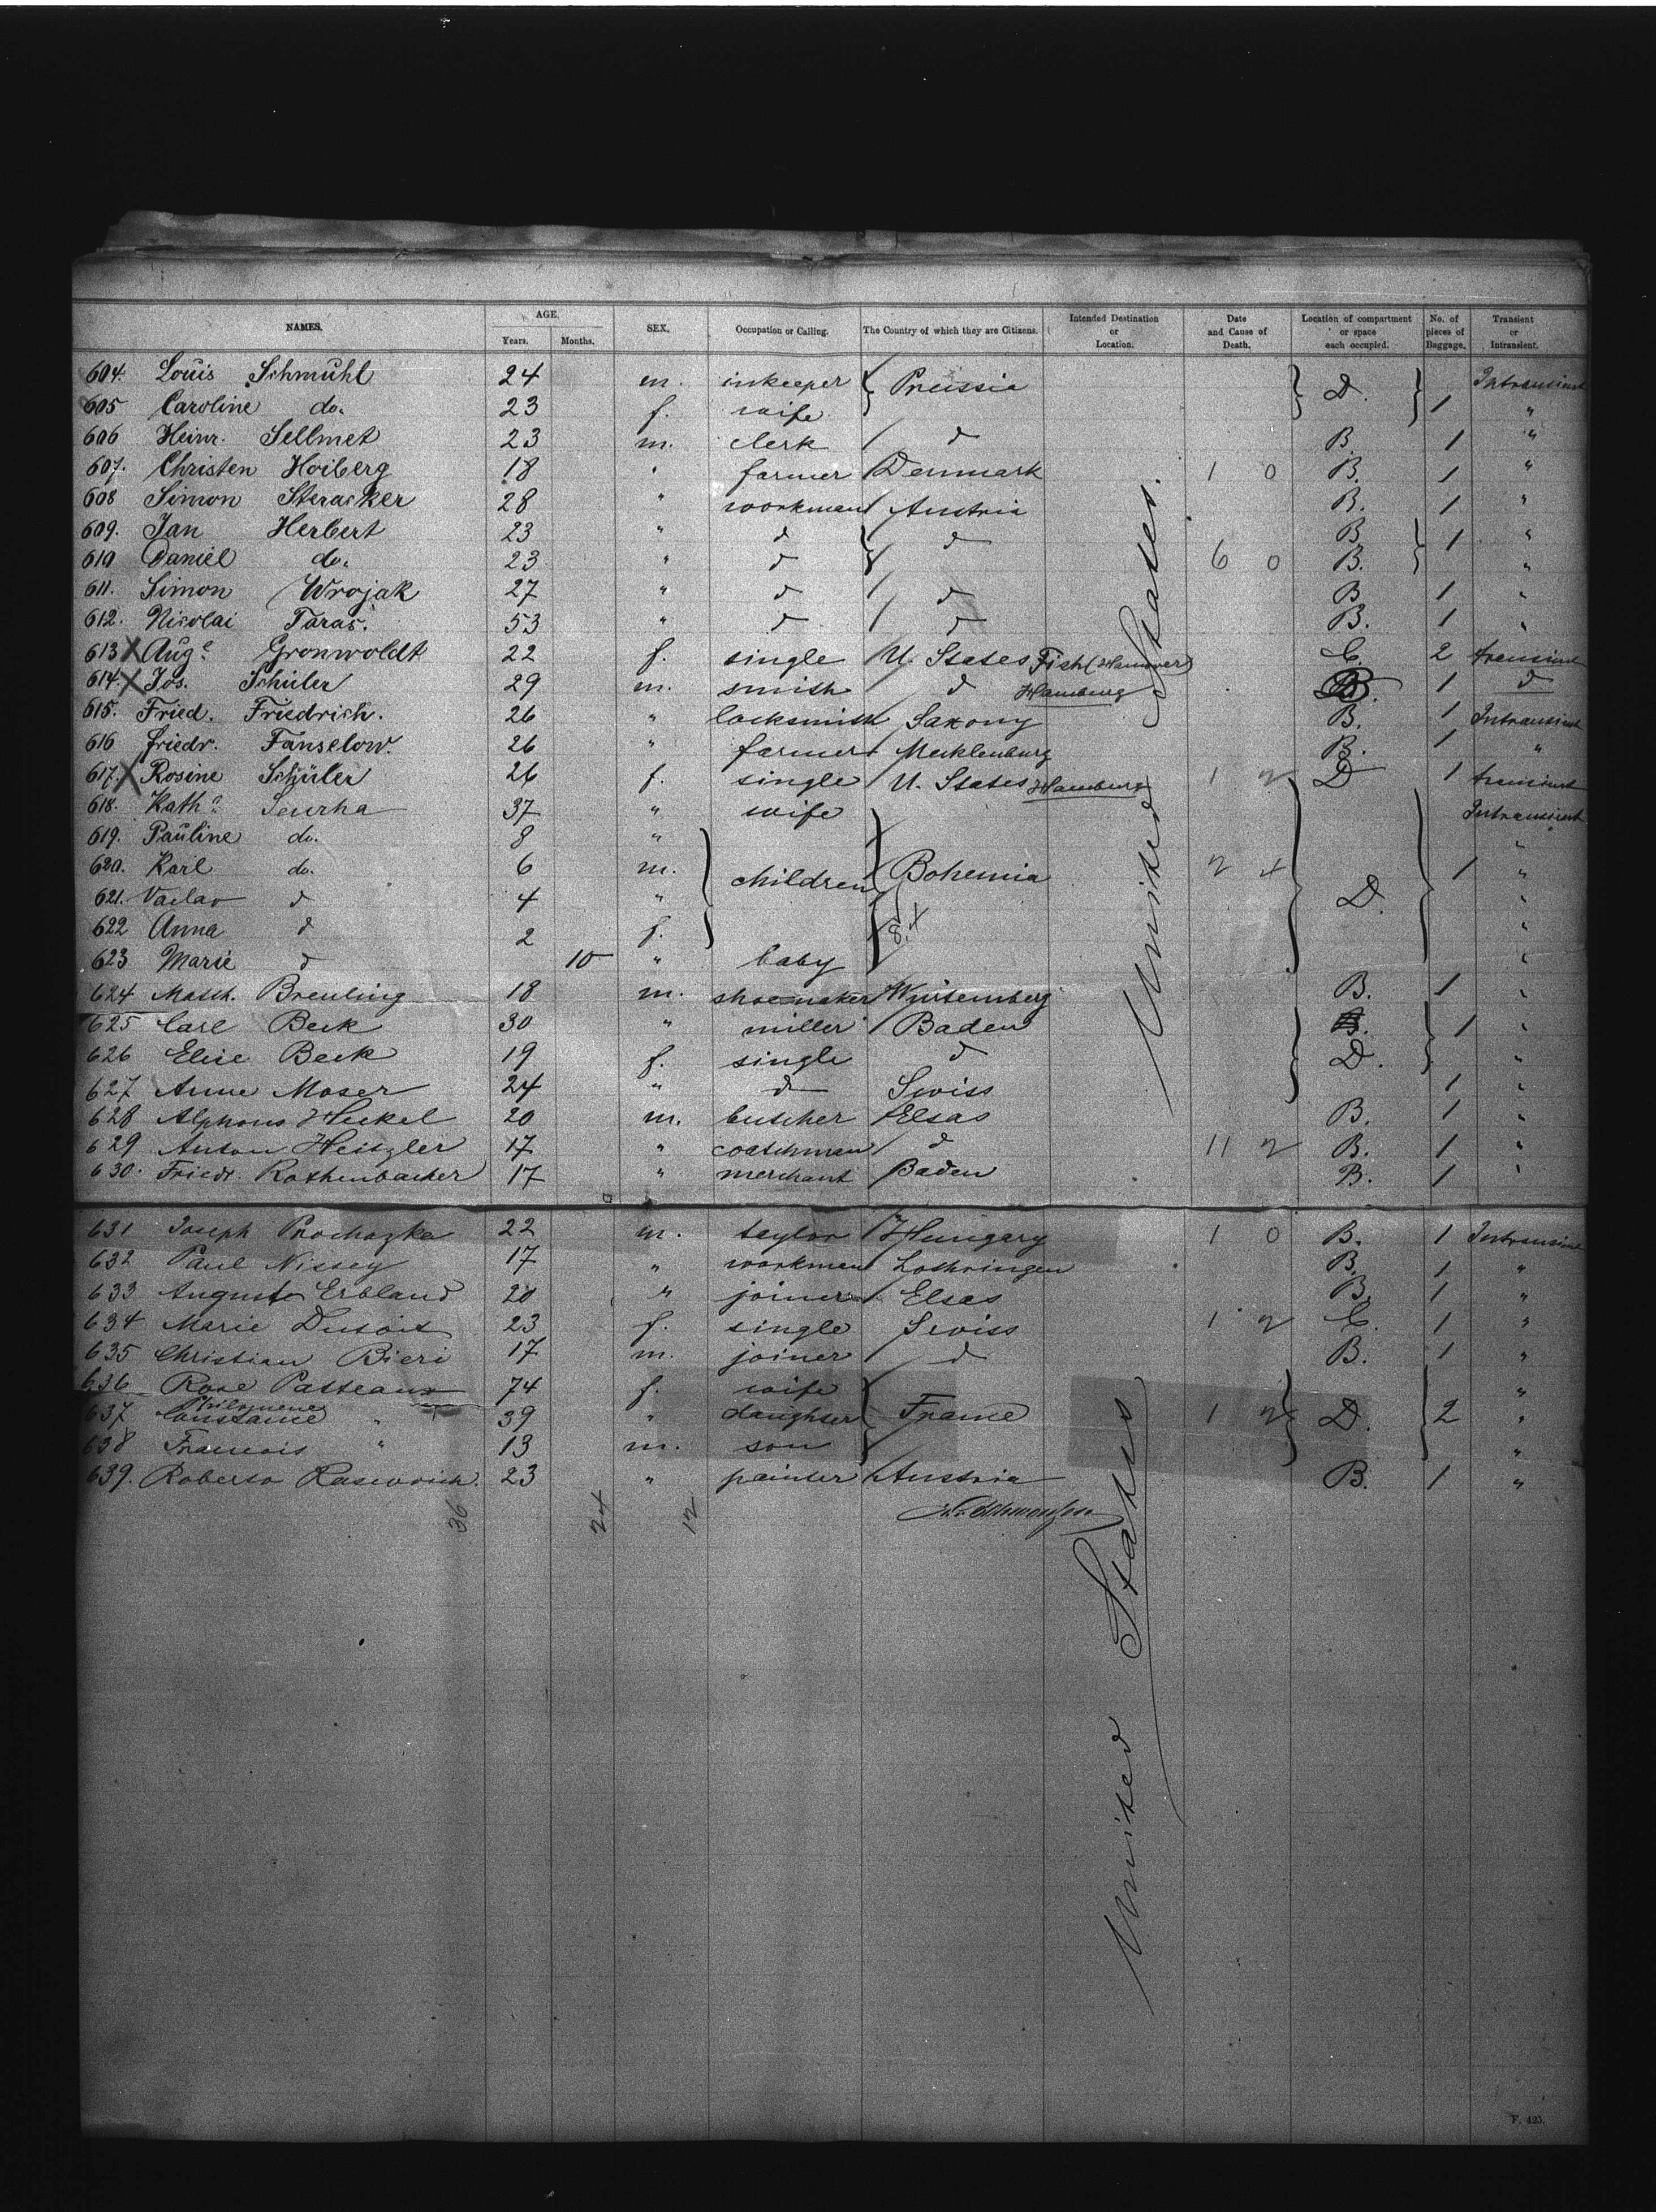 NAMES. AGE. Years. Months. SEX. Occupation or Calling. The Country of which they are Citizens. Intended Destination or Location. Date and Cause of Death. Location of compartment or space each occupied. No. of pieces of Baggage. Transient or Intransient.
604. Louis Schmühl 24 m. inkeeper Preussia D. Intransient
605 Caroline do. 23 f. wife 1 "
606 Heinr. Sellmet 23 m. clerk / d B. 1 "
607. Christen Hoiberg 18 " farmer / Denmark 1 0 B. 1 "
608 Simon Steracker 28 " workman / Austria B. 1 "
609. Jan Herbert 23 " d d B 1 "
610 Daniel do. 23 " d 6 0 B. "
611. Simon Wrojak 27 " d / d B 1 "
612. Nicolai Taras. 53 " d / d B. 1 "
613 X Auge Gronwoldt 22 f. single U. States Fish (Hannover) C. 2 transient
614. X Jos. Schüler 29 m. smith d Hamburg B. 1 d
615. Fried. Friedrich. 26 " locksmith / Saxony B. 1 Intransient
616 Friedr. Fanselow. 26 " farmer / Mecklenburg B. 1 "
617. X Rosine Schüler 26 f. single / U. States Hamburg 1 2 D 1 transient
618. Katha Seurha 37 " wife Intransient
619. Pauline do. 8 " "
620. Karl do. 6 m. children Bohemia 2 4 1 "
621. Vaclav d 4 " D. "
622 Anna d 2 f. 8.4 "
623 Marie d 10 " baby "
624 Matth. Breuling 18 m. shoemaker / Würtemberg B. 1 "
625 Carl Beck 30 " miller / Baden B. 1 "
626 Elise Beck 19 f. single d D. "
627 Anne Moser 24 " d Swiss 1 "
628 Alphons Heckel 20 m. butcher / Elsas B. 1 "
629 Anton Heitzler 17 " coatchman / d 11 2 B. 1 "
630. Friedr. Rothenbacher 17 " merchant / Baden B. 1 "
United States.
631 Joseph Prochazka 22 m. taylor / Hungary 1 0 B. 1 Intransient
632 Paul Nissey 17 " workman / Lothringen B. 1 "
633 Auguste Erbland 20 " joiner / Elsas B. 1 "
634 Marie Dubois 23 f. single Swiss 1 2 C. 1 "
635 Christian Bieri 17 m. joiner / d B. 1 "
636 Rose Patteaux 74 f. wife "
637 Philomene Constance " 39 " daughter France 1 2 D. 2 "
638 Francois " 13 m. son "
639. Roberto Raseovich. 23 " painter / Austria B. 1 "
36 24 12
United States
F. 425.